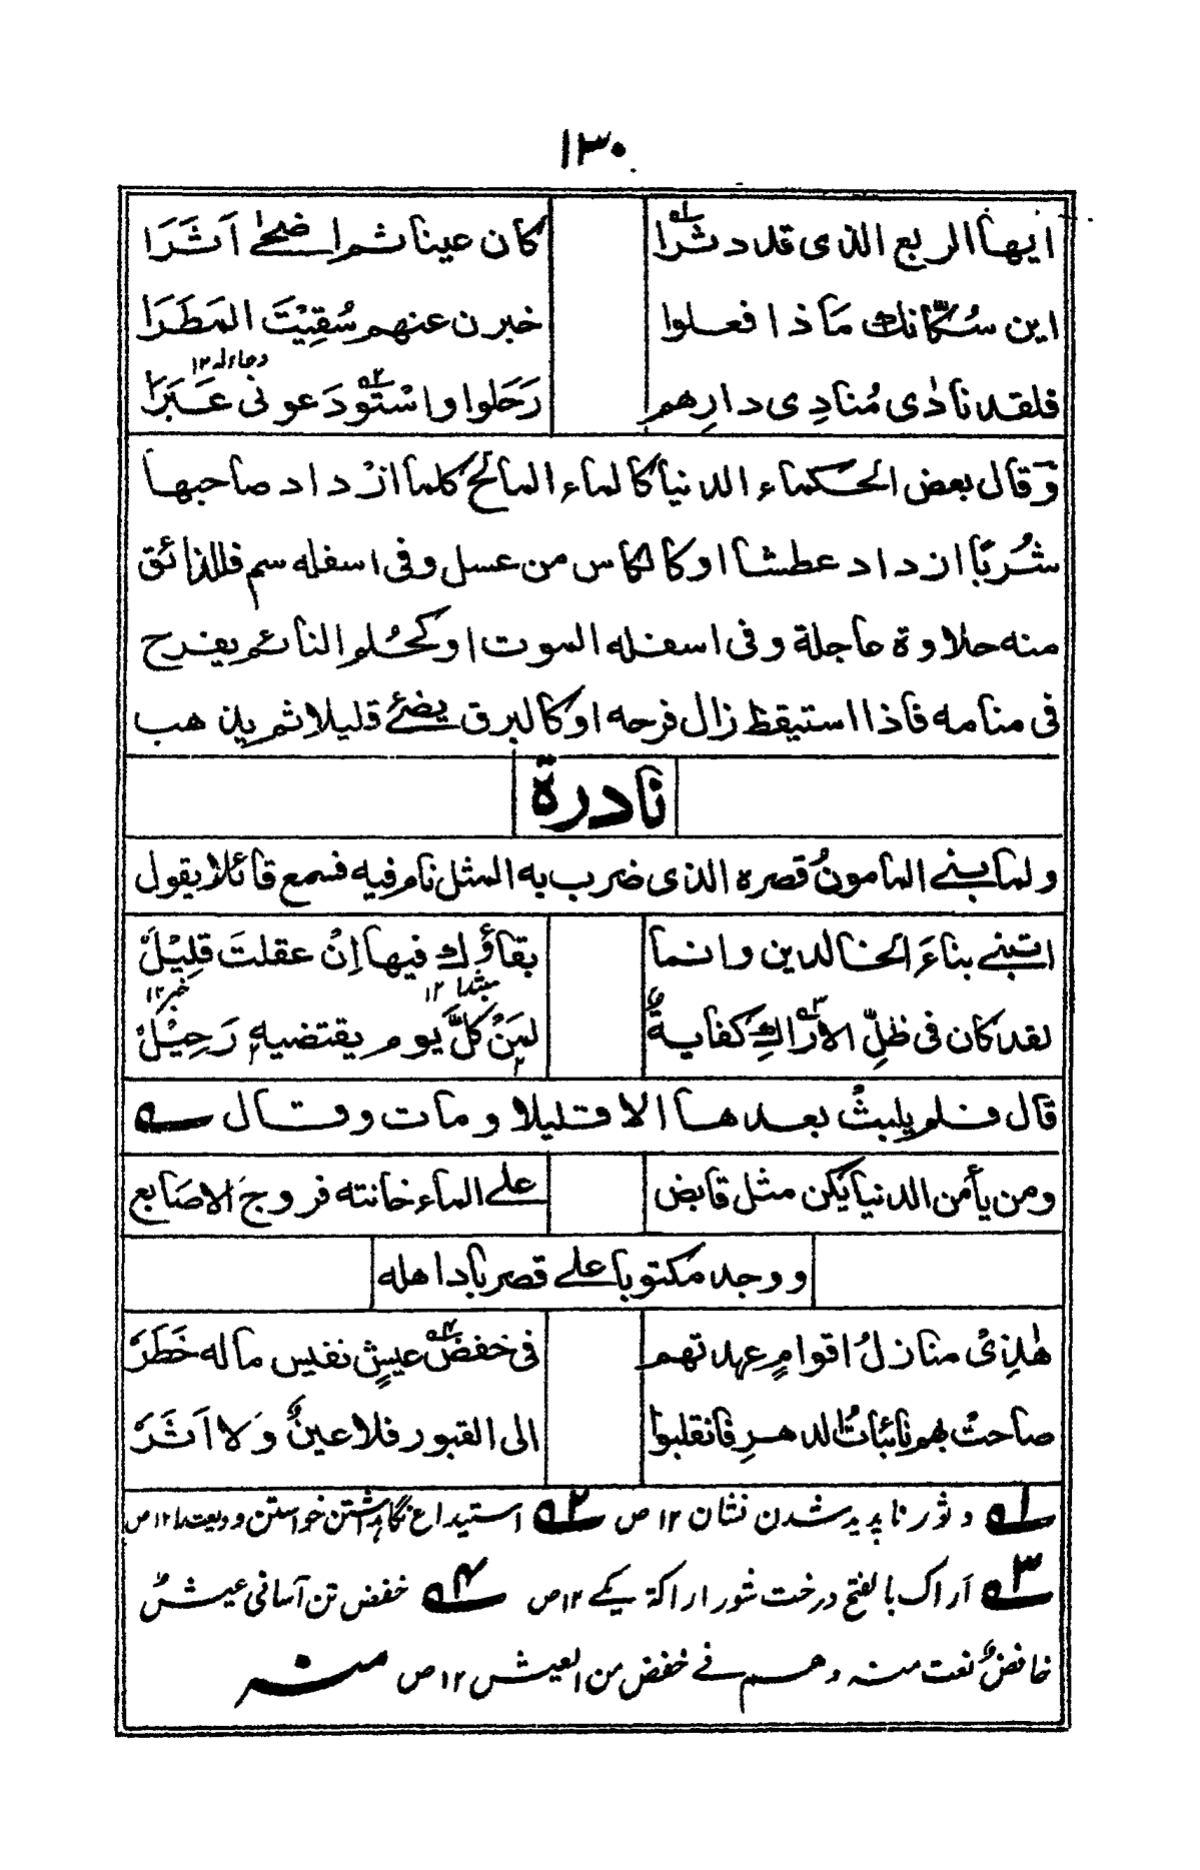 ١٣٠
ايها الربع الذى قد دثرا كان عينا ثم اضحى اَثَرَا
اين سُكّانك مَا ذا فعلوا خبرن عنهم سُقِيْتَ المَطَرَا
فلقد نادٰى مُنادِى دارِهم رَحَلوا واسْتَودَعونى عَبَرَا
وَقال بعض الحكماء الدنيا كالماء المالح كلما ازْداد صاحبها
شُربًا ازداد عطشا اوكالكاس من عسل وفى اسفله سم فللذائق
منه حلاوة عاجلة وفى اسفله الموت اوكحُلم النائم يفرح
فى منامه فاذا استيقظ زال فرحه اوكالبرق يضئ قليلا ثم يذهب
نادرة
ولما بنى المامونُ قصره الذى ضرب به المثل نام فيه فسمع قائلا يقول
اتبنى بناءَ الخالدين وانما بقاؤك فيها اِنْ عقلتَ قلِيْلُ
لقد كان فى ظلِّ الاَراكِ كفايةٌ لمَنْ كلَّ يوم يقتضيهِ رَحِيْلُ
قال فلم يلبثُ بعدها الا قليلا ومات وقال ے
ومن يأمن الدنيا يكن مثل قابض على الماء خانته فروجَ الاصَابع
ووجد مكتوبا على قصر باد اهله
هٰذِىْ منازلُ اقوامٍ عهدتهم فى خفضِ عيشٍ نفيس ماله خَطَرُ
صاحتْ بهم نائباتُ الدهرِ فانقلبوا الى القبور فلا عينٌ وَلا اَثَرُ
١ے دثور ناپديد شدن نشان ١٢ ص ٢ے استيداع نگاهداشتن خواستن وديعت را ١٢ ص
٣ے اَراك بالفتح درخت شور اراكة يكے ١٢ ص ٤ے خفض تن آسانى عيشٌ
خافضٌ نعت منه وهم فے خفض من العيش ١٢ ص منه